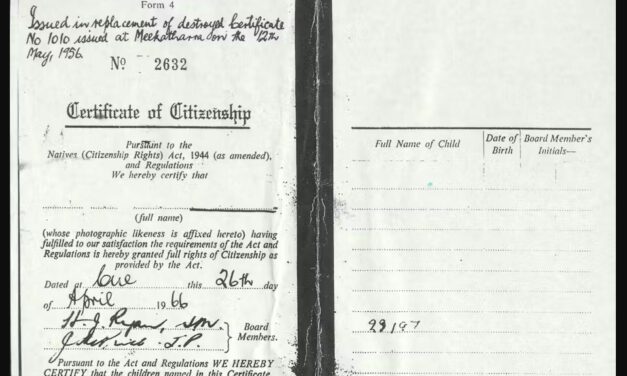 Form 4
Issued in replacement of destroyed Certificate
No 1010 issued at Meekatharra on the 12th
May, 1956.
No 2632
Certificate of Citizenship
Pursuant to the
Natives (Citizenship Rights) Act, 1944 (as amended),
and Regulations
We hereby certify that
(full name)
(whose photographic likeness is affixed hereto) having
fulfilled to our satisfaction the requirements of the Act and
Regulations is hereby granted full rights of Citizenship as
provided by the Act.
Dated at Cue this 26th day
of April 1966
H. J. Ryan, SM.
J. P.
Board
Members.
Pursuant to the Act and Regulations WE HEREBY
CERTIFY that the children named in this Certificate
Full Name of Child
Date of
Birth
Board Member's
Initials—